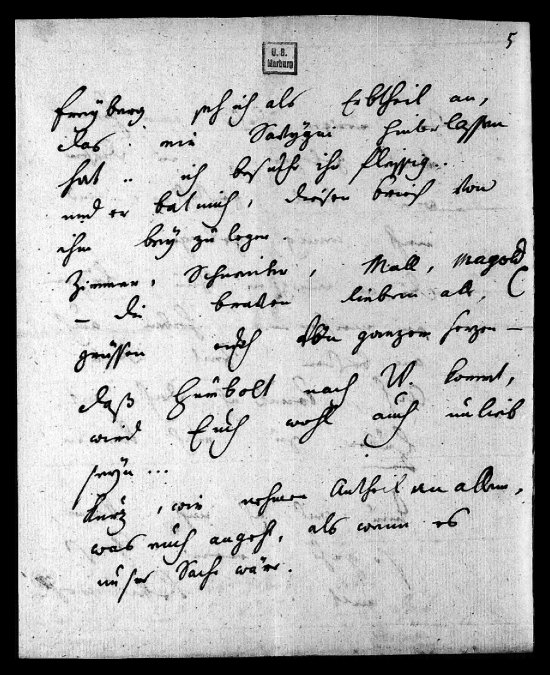 5
U. B.
Marburg
Freyberg seh ich als Erbtheil an,
das mir Savigni hinterlassen
hat .. ich besuche ihn fleissig ..
und er bat mich, diesen brief von
ihm bey zu legen.
Zimmer, Schneider, Mall, Magold
– die braven lieben alle,
grüssen euch von ganzem herzen –
daß Humbolt nach W. kommt,
wird Euch wohl auch nu lieb
seyn ...
kurz, wir nehmen Antheil an allem,
was euch angeht, als wenn es
unsre Sache wäre.